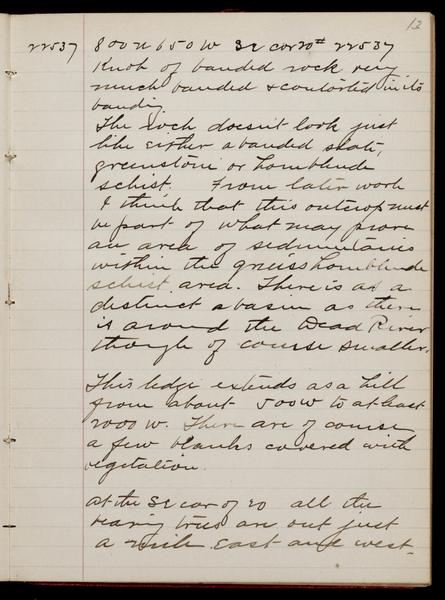 13
22537 800 N 650 W SE cor 20# 22537
Knob of banded rock very
much banded & contorted in its
banding
The rock doesn't look just
like either a banded slate,
greenstone or hornblende
schist. From later work
I think that this outcrop must
be part of what may prove
an area of sedimentaries
within the gneiss hornblende
schist area. There is as a
distinct a basin as there
is around the Dead River
though of course smaller.
This ledge extends as a hill
from about 500 W to at least
2000 W. There are of course
a few blanks covered with
vegetation.
At the SE cor of 20 all the
bearing trees are out just
a mile East and west.